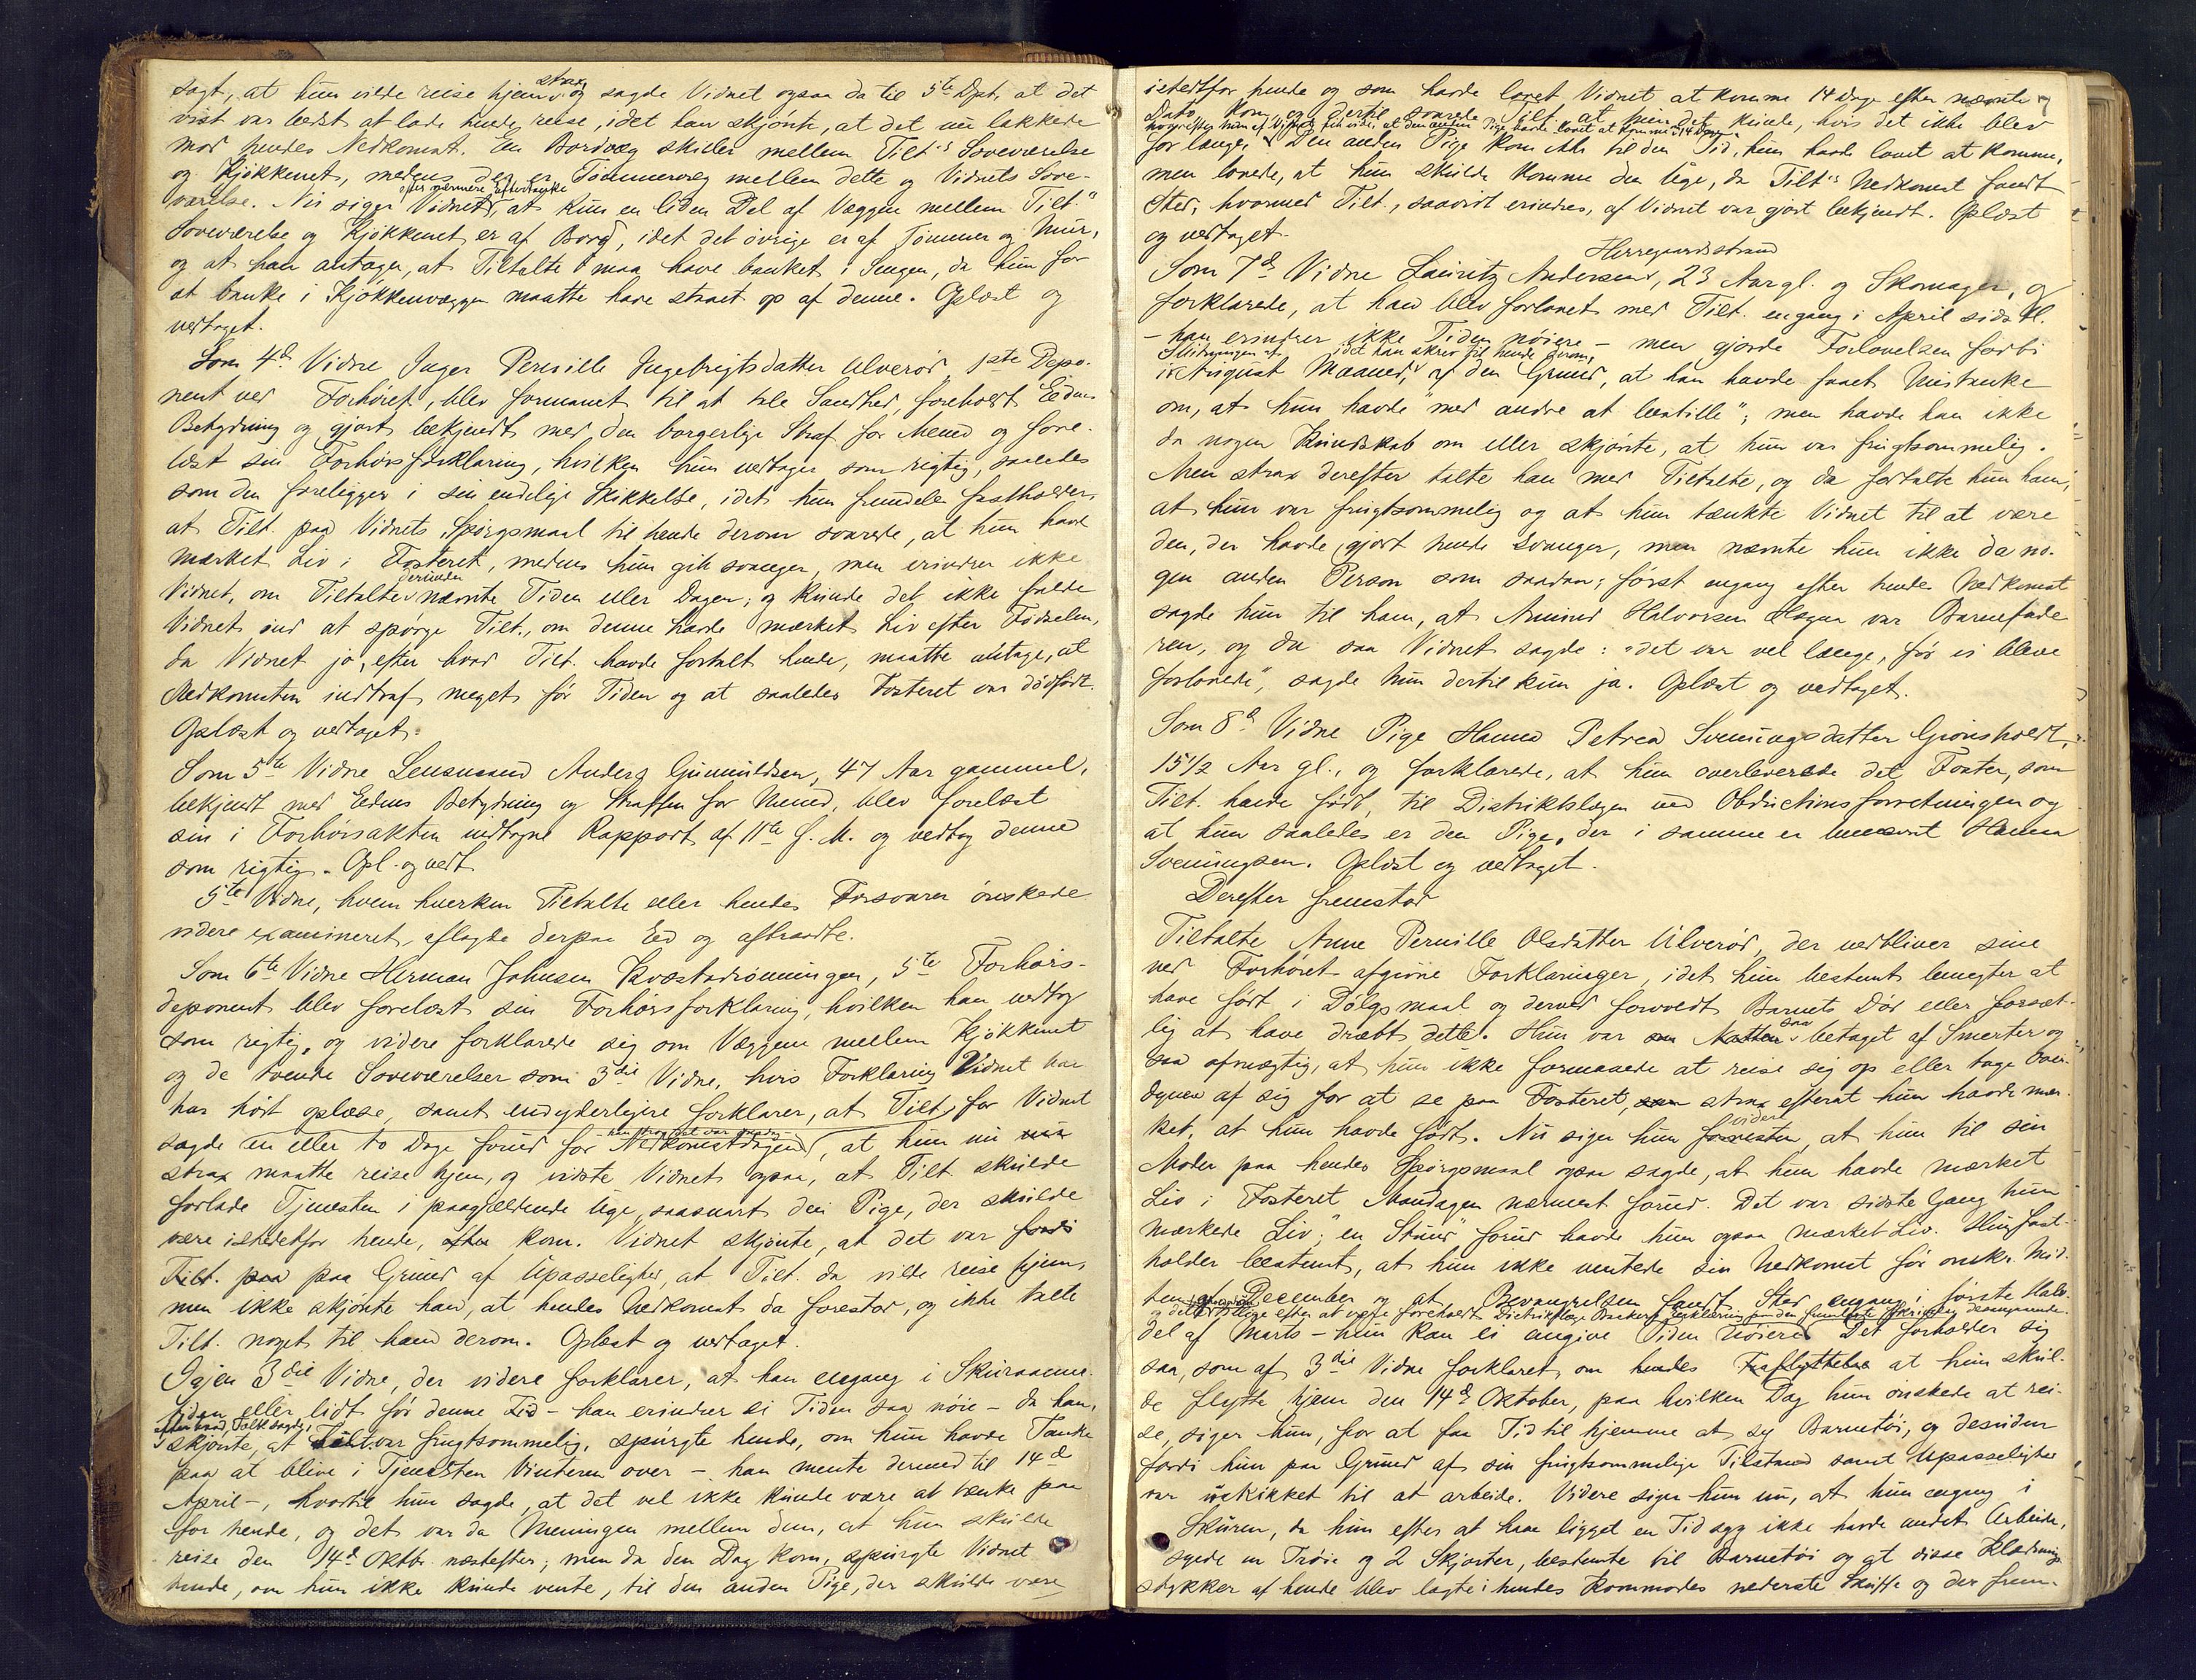 sagt, at hun vilde reise hjem strax og sagde Vidnet ogsaa da til 5te Dpt. at det
vist var bedst at lade hende reise, idet han skjønte, at det nu lakkede
mod hendes Nedkomst. En Bordvæg skiller mellem Tilt's Soveværelse
og Kjøkkenet, medens der er Tømmervæg mellem dette og Vidnets Sove-
værelse. Nu siger Vidnet, efter nærmere Eftertanke at kun en liden Del af Væggen mellem Tilt's
Soveværelse og Kjøkkenet er af Bord, idet det øvrige er af Tømmer og Mur,
og at han antager, at Tiltalte maa have banket i Sengen, da hun for
at banke i Kjøkkenvæggen maatte have staaet op af denne. Oplæst og
vedtaget.
Som 4d Vidne Inger Pernille Ingebrigtsdatter Ulverød, 1ste Depo-
nent ved Forhøret, blev formanet til at tale Sandhed, foreholdt Edens
Betydning og gjort bekjendt med den borgerlige Straf for Mened og fore-
læst sin Forhørsforklaring, hvilken hun vedtager som rigtig, saaledes
som den foreligger i sin endelige Skikkelse, idet hun fremdeles fastholder,
at Tilt. paa Vidnets Spørgsmaal til hende derom svarede, at hun havde
mærket Liv i Fosteret, medens hun gik svanger, men erindrer ikke
Vidnet, om Tiltalte derunder nævnte Tiden eller Dagen; og kunde det ikke falde
Vidnet ind at spørge Tilt., om denne havde mærket Liv efter Fødselen,
da Vidnet jo, efter hvad Tilt. havde fortalt hende, maatte antage, at
Nedkomsten indtraf meget før Tiden og at saaledes Fosteret var dødfødt.
Oplæst og vedtaget.
Som 5te Vidne Lensmand Anders Gunnuldsen, 47 Aar gammel,
bekjendt med Edens Betydning og Straffen for Mened, blev forelæst
sin i Forhørsakten indtagne Rapport af 11te f. M. og vedtog denne
som rigtig. Opl. og vedt.
5te Vidne, hvem hverken Tiltalte eller hendes Forsvarer ønskede
videre examineret, aflagde derpaa Ed og aftraadte.
Som 6te Vidne Herman Johnsen Kvæstadrønningen, 5te Forhørs-
deponent blev forelæst sin Forhørsforklaring, hvilken han vedtog
som rigtig, og videre forklarede sig om Væggene mellem Kjøkkenet
og de tvende Soveværelser som 3die Vidne, hvis Forklaring Vidnet har
har hørt oplæse, samt endyderligere forklarer, at Tilt. for Vidnet
sagde en eller to Dage forud for Nedkomstdagen, at hun nu
strax maatte reise hjem, og vidste Vidnet ogsaa, at Tilt. skulde
forlade Tjenesten i paagjældende Uge, saasnart den Pige, der skulde
være istedetfor hende, kom. Vidnet skjønte, at det var fordi
Tilt. paa paa Grund af Upasselighed, at Tilt. da vilde reise hjem,
men ikke skjønte han, at hendes Nedkomst da forestod, og ikke talte
Tilt. noget til ham derom. Oplæst og vedtaget.
Igjen 3die Vidne, der videre forklarer, at han engang i Skuraanne-
tiden eller lidt før denne Tid - han erindrer ei Tiden saa nøie - da han,
efter hvad Folk sagde, skjønte, at Tilt. var frugtsommelig, spurgte hende, om hun havde Tanke
paa at blive i Tjenesten Vinteren over - han mente dermed til 14d
April -, hvortil hun sagde, at det vel ikke kunde være at tænke paa
for hende, og det var da Meningen mellem dem, at hun skulde
reise den 14d Oktbr. næstefter; men da den Dag kom, spurgte Vidnet
hende, om hun ikke kunde vente, til den anden Pige, der skulde være
istedtfor hende og som havde lovet Vidnet at komme 14 Dage efter nævnte
Dato kom, og dertil svarede Tilt. at hun det kunde, hvis det ikke blev
for længe, Den anden Pige kom ikke til den Tid, hun havde lovet at komme,
men lovede, at hun skulde komme den Uge, da Tilt's Nedkomst fandt
Sted, hvormed Tilt., saavidt erindres, af Vidnet var gjort bekjendt. Oplæst
og vedtaget.
Som 7d Vidne Lauritz Andersen Herregaardsstrand, 23 Aar gl. og Skomager, og
forklarede, at han blev forlovet med Tilt. engang i April sidstl.
- han erindrer ikke Tiden nøiere - men gjorde Forlovelsen forbi
i Slutningen af August Maaned, idet han skrev til hende derom, af den Grund, at han havde faaet Mistanke
om, at hun havde "med andre at bestille"; men havde han ikke
da nogen Kundskab om eller skjønte, at hun var frugtsommelig.
Men strax derefter talte han med Tiltalte, og da fortalte hun ham,
at hun var frugtsommelig og at hun tænkte Vidnet til at være
den, der havde gjort hende svanger, men nævnte hun ikke da no-
gen anden Person som saadan; først engang efter hendes Nedkomst
sagde hun til ham, at Amund Halvorsen var Barnefade
ren, og da saa Vidnet sagde: "det var vel længe, før vi bleve
forlovede", sagde hun dertil kun ja. Oplæst og vedtaget.
Som 8d Vidne Pige Hanna Petrea Sveningsdatter Grønsholdt,
15 1/2 Aar gl., og forklarede, at hun overleverede det Foster, som
Tilt. havde født, til Distriktslægen ved Obductionsforretningen og
at hun saaledes er den Pige, der i samme er benævnt Hanna
Sveningsen. Oplæst og vedtaget.
Derefter fremstod
Tiltalte Anne Pernille Olsdatter Ulverød, der vedbliver sine
ved Forhøret afgivne Forklaringer, idet hun bestemt benegter at
have født i Dølgsmaal og derved forvoldt Barnets Død eller forsæt-
lig at have dræbt dette. Hun var saa betaget af Smerter og
saa afmægtig, at hun ikke formaaede at reise sig op eller tage Over-
dynen af sig for at se paa Fosteret, strax efterat hun havde mær-
ket, at hun havde født. Nu siger hun videre, at hun til sin
Moder paa hendes Spørgsmaal ogsaa sagde, at hun havde mærket
Liv i Fosteret Mandagen nærmest forud. Det var sidste Gang hun
mærkede Liv; "en Stund" forud havde hun ogsaa mærket Liv. Hun fast-
holder bestemt, at hun ikke ventede sin Nedkomst før omkr. Mid-
ten af December og at Besvangrelsen fandt Sted engang i første Halv-
del af Marts - hun kan ei angive Tiden nøiere. Det forholder sig
saa, som af 3die Vidne forklaret, om at hun skul-
de flytte hjem den 14d Oktober, paa hvilken Dag hun ønskede at rei-
se, siger hun, for at faa Tid til hjemme at sy Barnetøi, og desuden
fordi hun paa Grund af sin frugtsommelige Tilstand samt Upasselighed
var uskikket til at arbeide. Videre siger hun nu, at hun engang i
Skuren, da hun efter at have ligget en Tid syg ikke havde andet Arbeide,
syede en Trøie og 2 Skjorter, bestemte til Barnetøi og at disse Klædnings
stykker af hende blev lagte i hendes Kommodes nederste Skuffe og der frem-